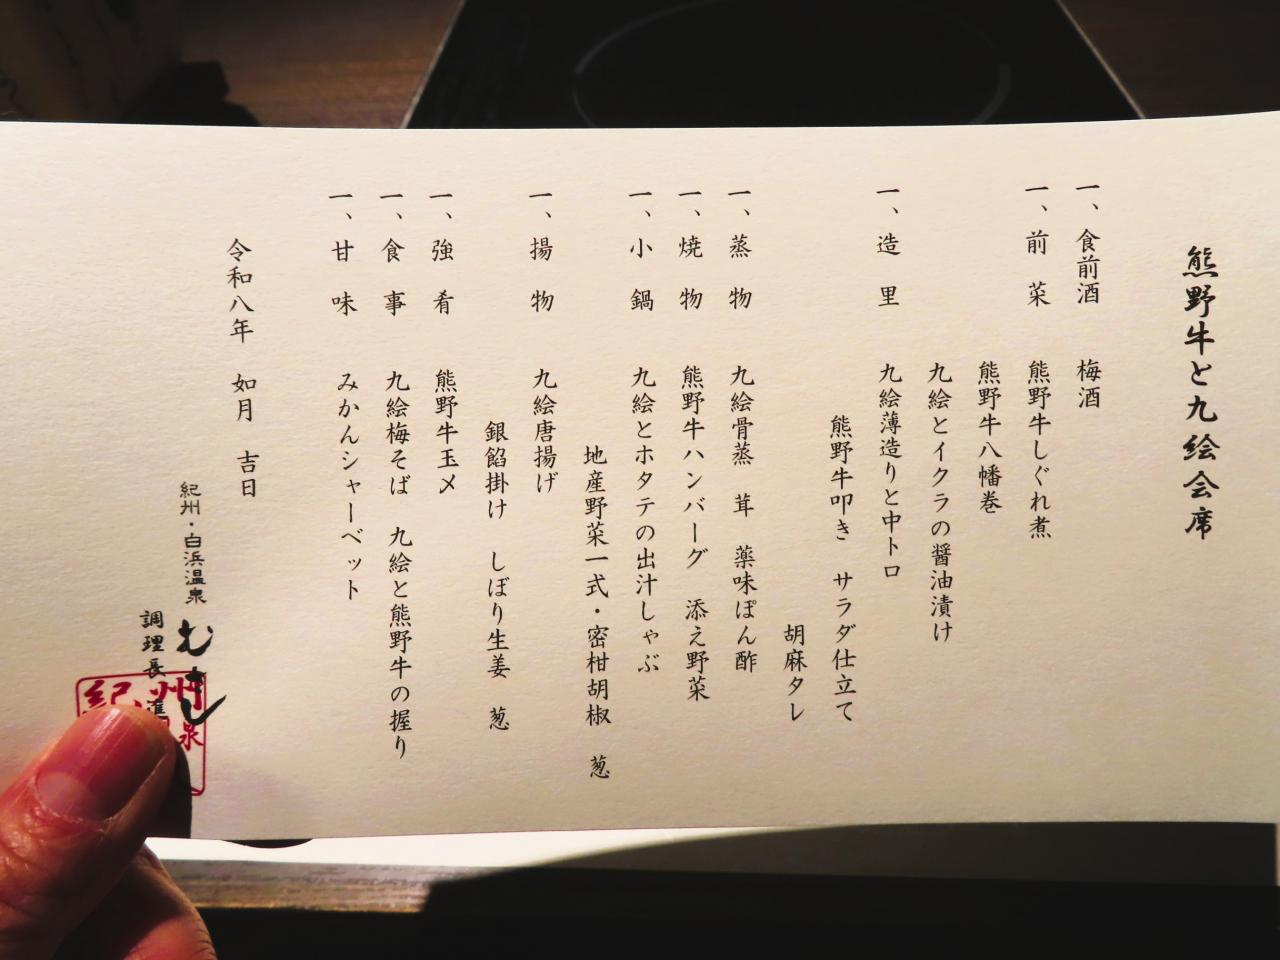 熊野牛と九絵会席
一、食前酒　梅酒
一、前菜　熊野牛しぐれ煮
熊野牛八幡巻
九絵とイクラの醤油漬け
一、造里　九絵薄造りと中トロ
熊野牛叩き　サラダ仕立て
胡麻タレ
一、蒸物　九絵骨蒸　茸　薬味ぽん酢
一、焼物　熊野牛ハンバーグ　添え野菜
一、小鍋　九絵とホタテの出汁しゃぶ
地産野菜一式・密柑胡椒　葱
一、揚物　九絵唐揚げ
銀餡掛け　しぼり生姜　葱
一、強肴　熊野牛玉〆
一、食事　九絵梅そば　九絵と熊野牛の握り
一、甘味　みかんシャーベット
令和八年　如月　吉日
紀州・白浜温泉　むさし
調理長
紀州
泉